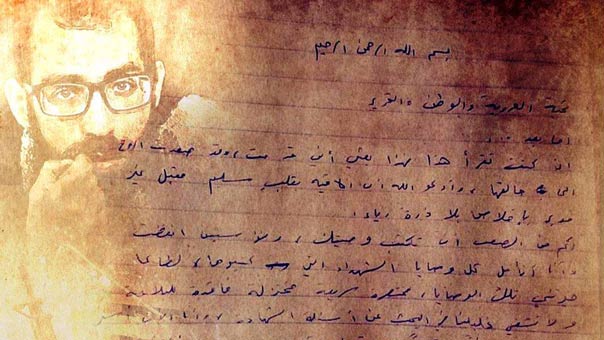 بسم الله الرحمن الرحيم
تحية العروبة والوطن والتحرير
اما بعد ...
ان كنت تقرأ هذا فهذا يعني أني قد مت، وقد صعدت الروح
الى خالقها، وأدعو الله أن ألاقيه بقلب سليم مقبل غير
مدبر بإخلاص بلا ذرة رياء.
لكم من الصعب ان تكتب وصيتك، ومنذ سنين انقضت
وانا أتأمل كل وصايا الشهداء التي كتبوها، لطالما
حيرتني تلك الوصايا، مختصرة سريعة مختزلة فاقدة للبلاغة
ولا تشفي غليلنا في البحث عن أسئلة الشهادة، وانا الآن